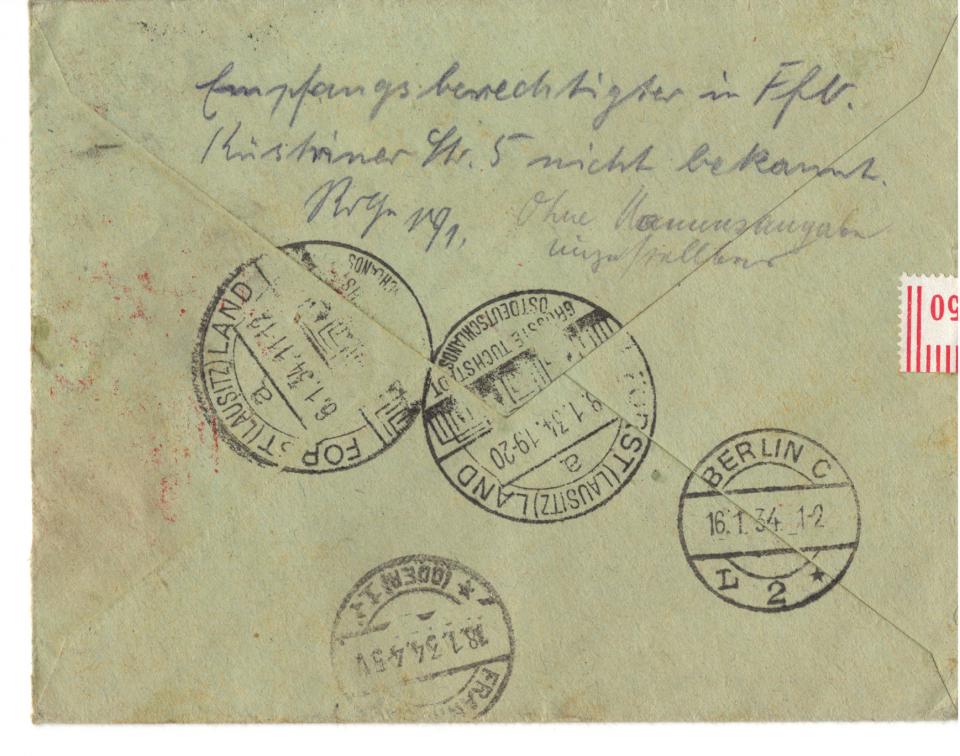 Empfangsberechtigter in Ffb.
Küstriner Str. 5 nicht bekannt.
Ohne Namensangabe
unzustellbar
FORST (LAUSITZ) LAND
8.1.34.11-12
a
FORST (LAUSITZ) LAND
8.1.34.19-20
a
GRÖSSTE TUCHSTADT
OSTDEUTSCHLANDS
50
BERLIN C
16.1.34. 1-2
L 2 *
(ODER)
18.1.34.4-5V
FRAN